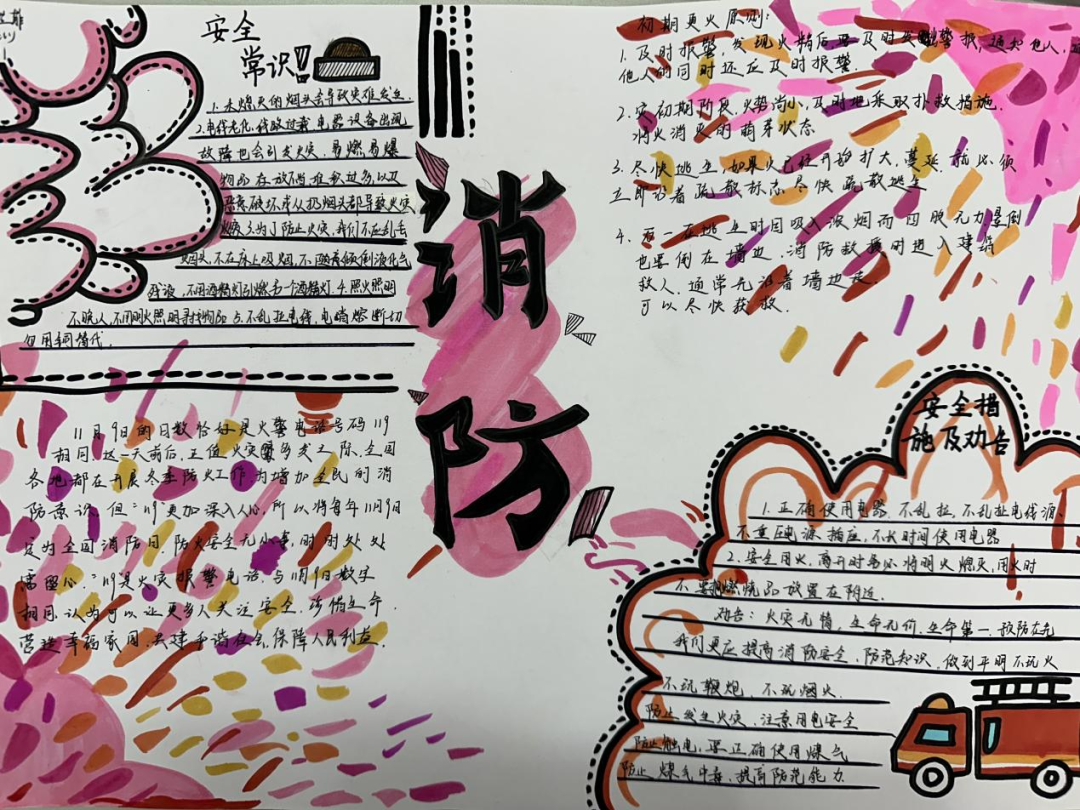 安全
常识!!
1.未熄灭的烟头会导致灾难发生
2.电线老化、线路过载、电器设备出现
故障也会引发火灾、易燃易爆
物品存放不当堆积过多,以及
恶意破坏 扔烟头都导致火灾
3.为了防止火灾,我们不应乱丢
烟头,不在床上吸烟,不随意倾倒液化气
残液,不用酒精灯引燃另一个酒精灯.4.照火照明
不唤人,不用明火照明寻找物品5.不乱扯电线,电 熔断切
勿用铜替代.
消
防
初期灭火原则:
1.及时报警,发现火情后要及时 警报,通知他人,
他人的同时还应及时报警.
2.灾初期阶段,火势尚小,及时地采取扑救措施.
将火消灭的萌芽状态
3.尽快逃生,如果火已经开始扩大,蔓延就必须
立即沿着疏散标志尽快疏散逃生
4.万一在逃生时因吸入浓烟而因脱无力晕倒
也要倒在墙边,消防救援时进入建筑
救人,通常先沿着墙边走.
可以尽快获救.
11月9日的日数恰好是火警电话号码119
相同.这一天前后,正值火灾多发之际.全国
各地都在开展冬季防火工作.为增加全民的消
防意识,但"119"更加深入人心,所以将每年11月9日
定为全国消防日.防火安全无小事,时时处处
需留心."119是火灾报警电话,与11月9日数字
相同.认为可以让更多人关注安全,珍惜生命.
营造幸福家园,共建和谐社会,保障人民利益.
安全措
施及劝告
1.正确使用电器,不乱拉,不乱扯电线源、
不重压电源插座,不长时间使用电器
2.安全用火,离开时务必将明火熄灭,用火时
不要把燃烧品放置在附近.
劝告:火灾无情,生命无价.生命第一,预防在先
我们更应提高消防安全、防范知识,做到平明不玩火
不玩鞭炮,不玩烟火.
防止发生火灾,注意用电安全
防止触电,要正确使用煤气
防止煤气中毒,提高防范能力